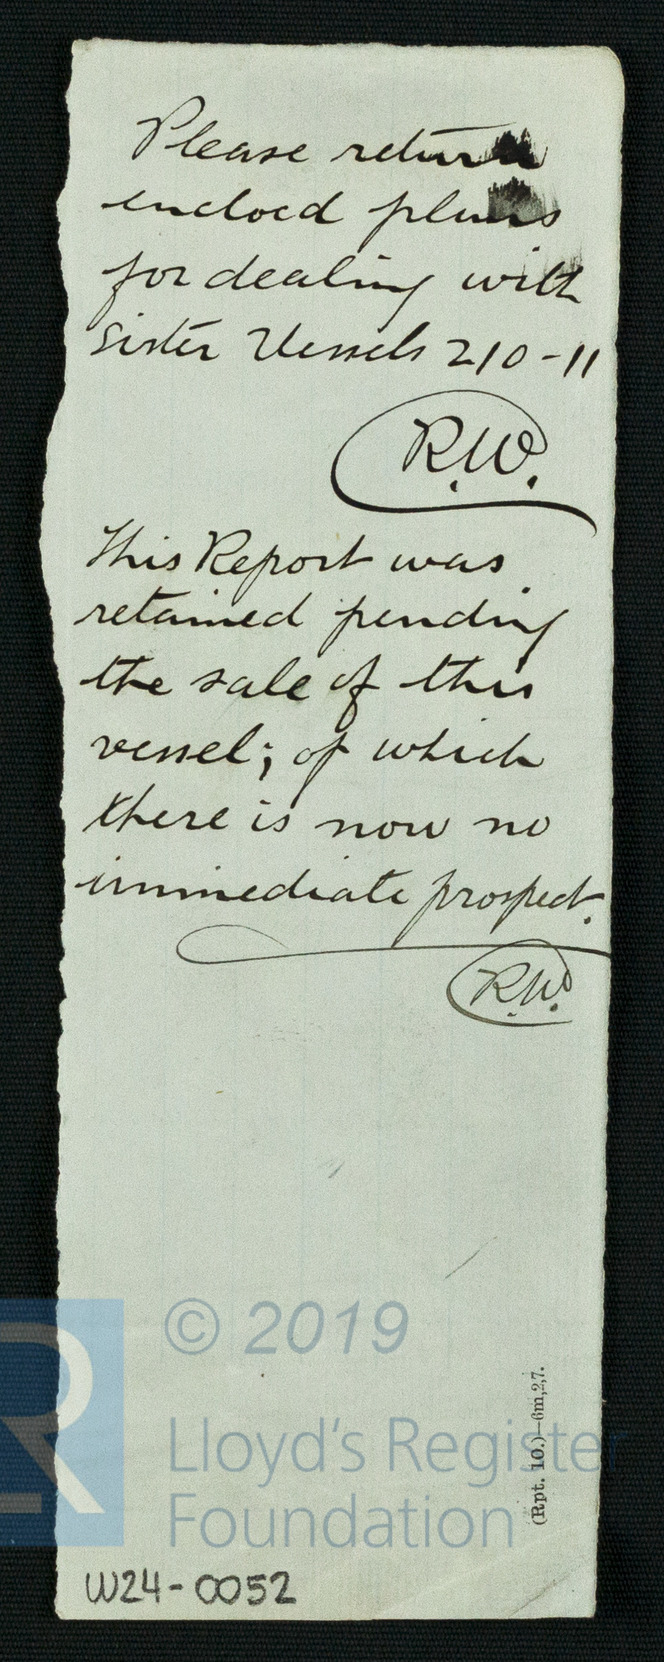 Please return
encloed plans
for dealing with
Sister Vessels 210-11
R.W.
This Report was
retained pending
the sale of this
vessel; of which
there is now no
immediate prospect.
R.W.
© 2019
Lloyd's Register
Foundation
(Rpt. 10.)—6m,2,7.
W24-0052